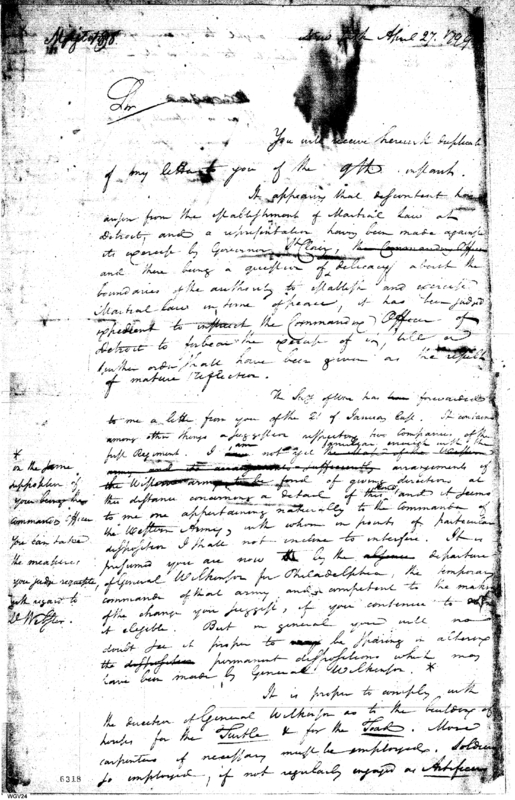 New York April 27. 1799
Sir
You will receive herewith duplicate
of my letter to you of the 9th instant.
It appearing that discontent has
arisen from the establishment of Martial Law at
Detroit, and a representation having been made against
its exercise by Governor St Clair, the Commanding Officer
and there being a question of delicacy about the
boundaries of the authority to establish and exercise
Martial Law in time of peace, it has been judged
expedient to instruct the Commanding Officer of
Detroit to forbear the exercise of it, till
further order shall have been given as the result
of mature reflection.
The Secy of War has forwarded
to me a letter from you of the 2d of January last. It contained
among other things a suggestion respecting two Companies of the
first Regiment. I am not yet enough with the
arrangements of
the Western army to be fond of giving direction at
this distance concerning a detail of this kind and it seems
to me appertaining naturally to the Commander of
the Western Army, with whom in points of particular
disposition I shall not incline to interfere. It is
presumed you are now by the departure
of General Wilkinson for Philadelphia, the temporary
commander of that army and competent to the making
of the change you suggest, if you continue to
it eligible. But in general you will no
doubt see it proper to be sparing in altering
the dispositions permanent dispositions which may
have been made by General Wilkinson. *
*
on the same
disposition of
you being the
commanding officer
You can take
the measures
you judge requisite
with regard to
It is proper to comply with
the direction of General Wilkinson as to the building of
houses for the Turtle & for the Toad. More
carpenters if necessary must be employed. Soldiers
so employed, if not regularly engaged as Artificers
6318
WGV24